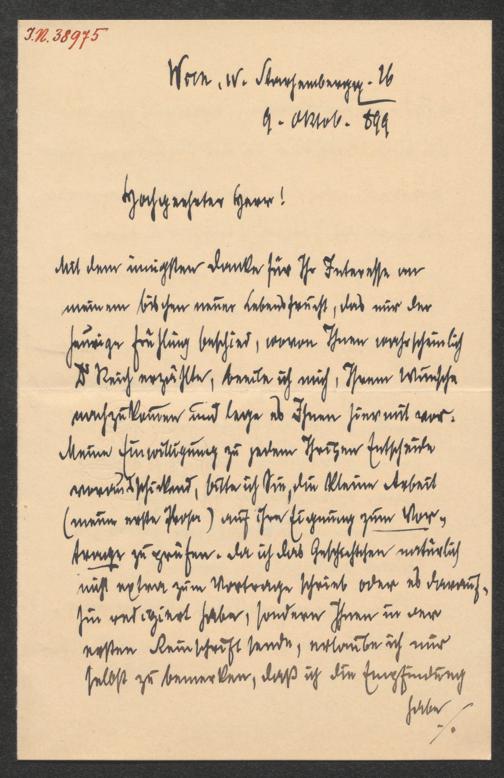 J.N. 38975
Wien, IV. Starhembergg. 26
9. Oktob. 899
Hochgeehrter Herr!
Mit dem innigsten Danke für Ihr Interesse an
meinem bischen neuer Lebensfrucht, das mir der
heurige Frühling beschied, wovon Ihnen wahrscheinlich
Dr Reich erzählte, beeile ich mich, Ihrem Wunsche
nachzukommen und lege es Ihnen hiermit vor.
Meine Einwilligung zu jedem Ihrigen Entscheide
vorausschickend, bitte ich Sie, die kleine Arbeit
(meine erste Prosa) auf ihre Eignung zum Vor-
trage zu prüfen. Da ich das Geschichtchen natürlich
nicht extra zum Vortrage schrieb oder es darauf-
hin redigiert habe, sondern Ihnen in der
ersten Reinschrift sende, erlaube ich mir
selbst zu bemerken, daß ich die Empfindung
habe ./.